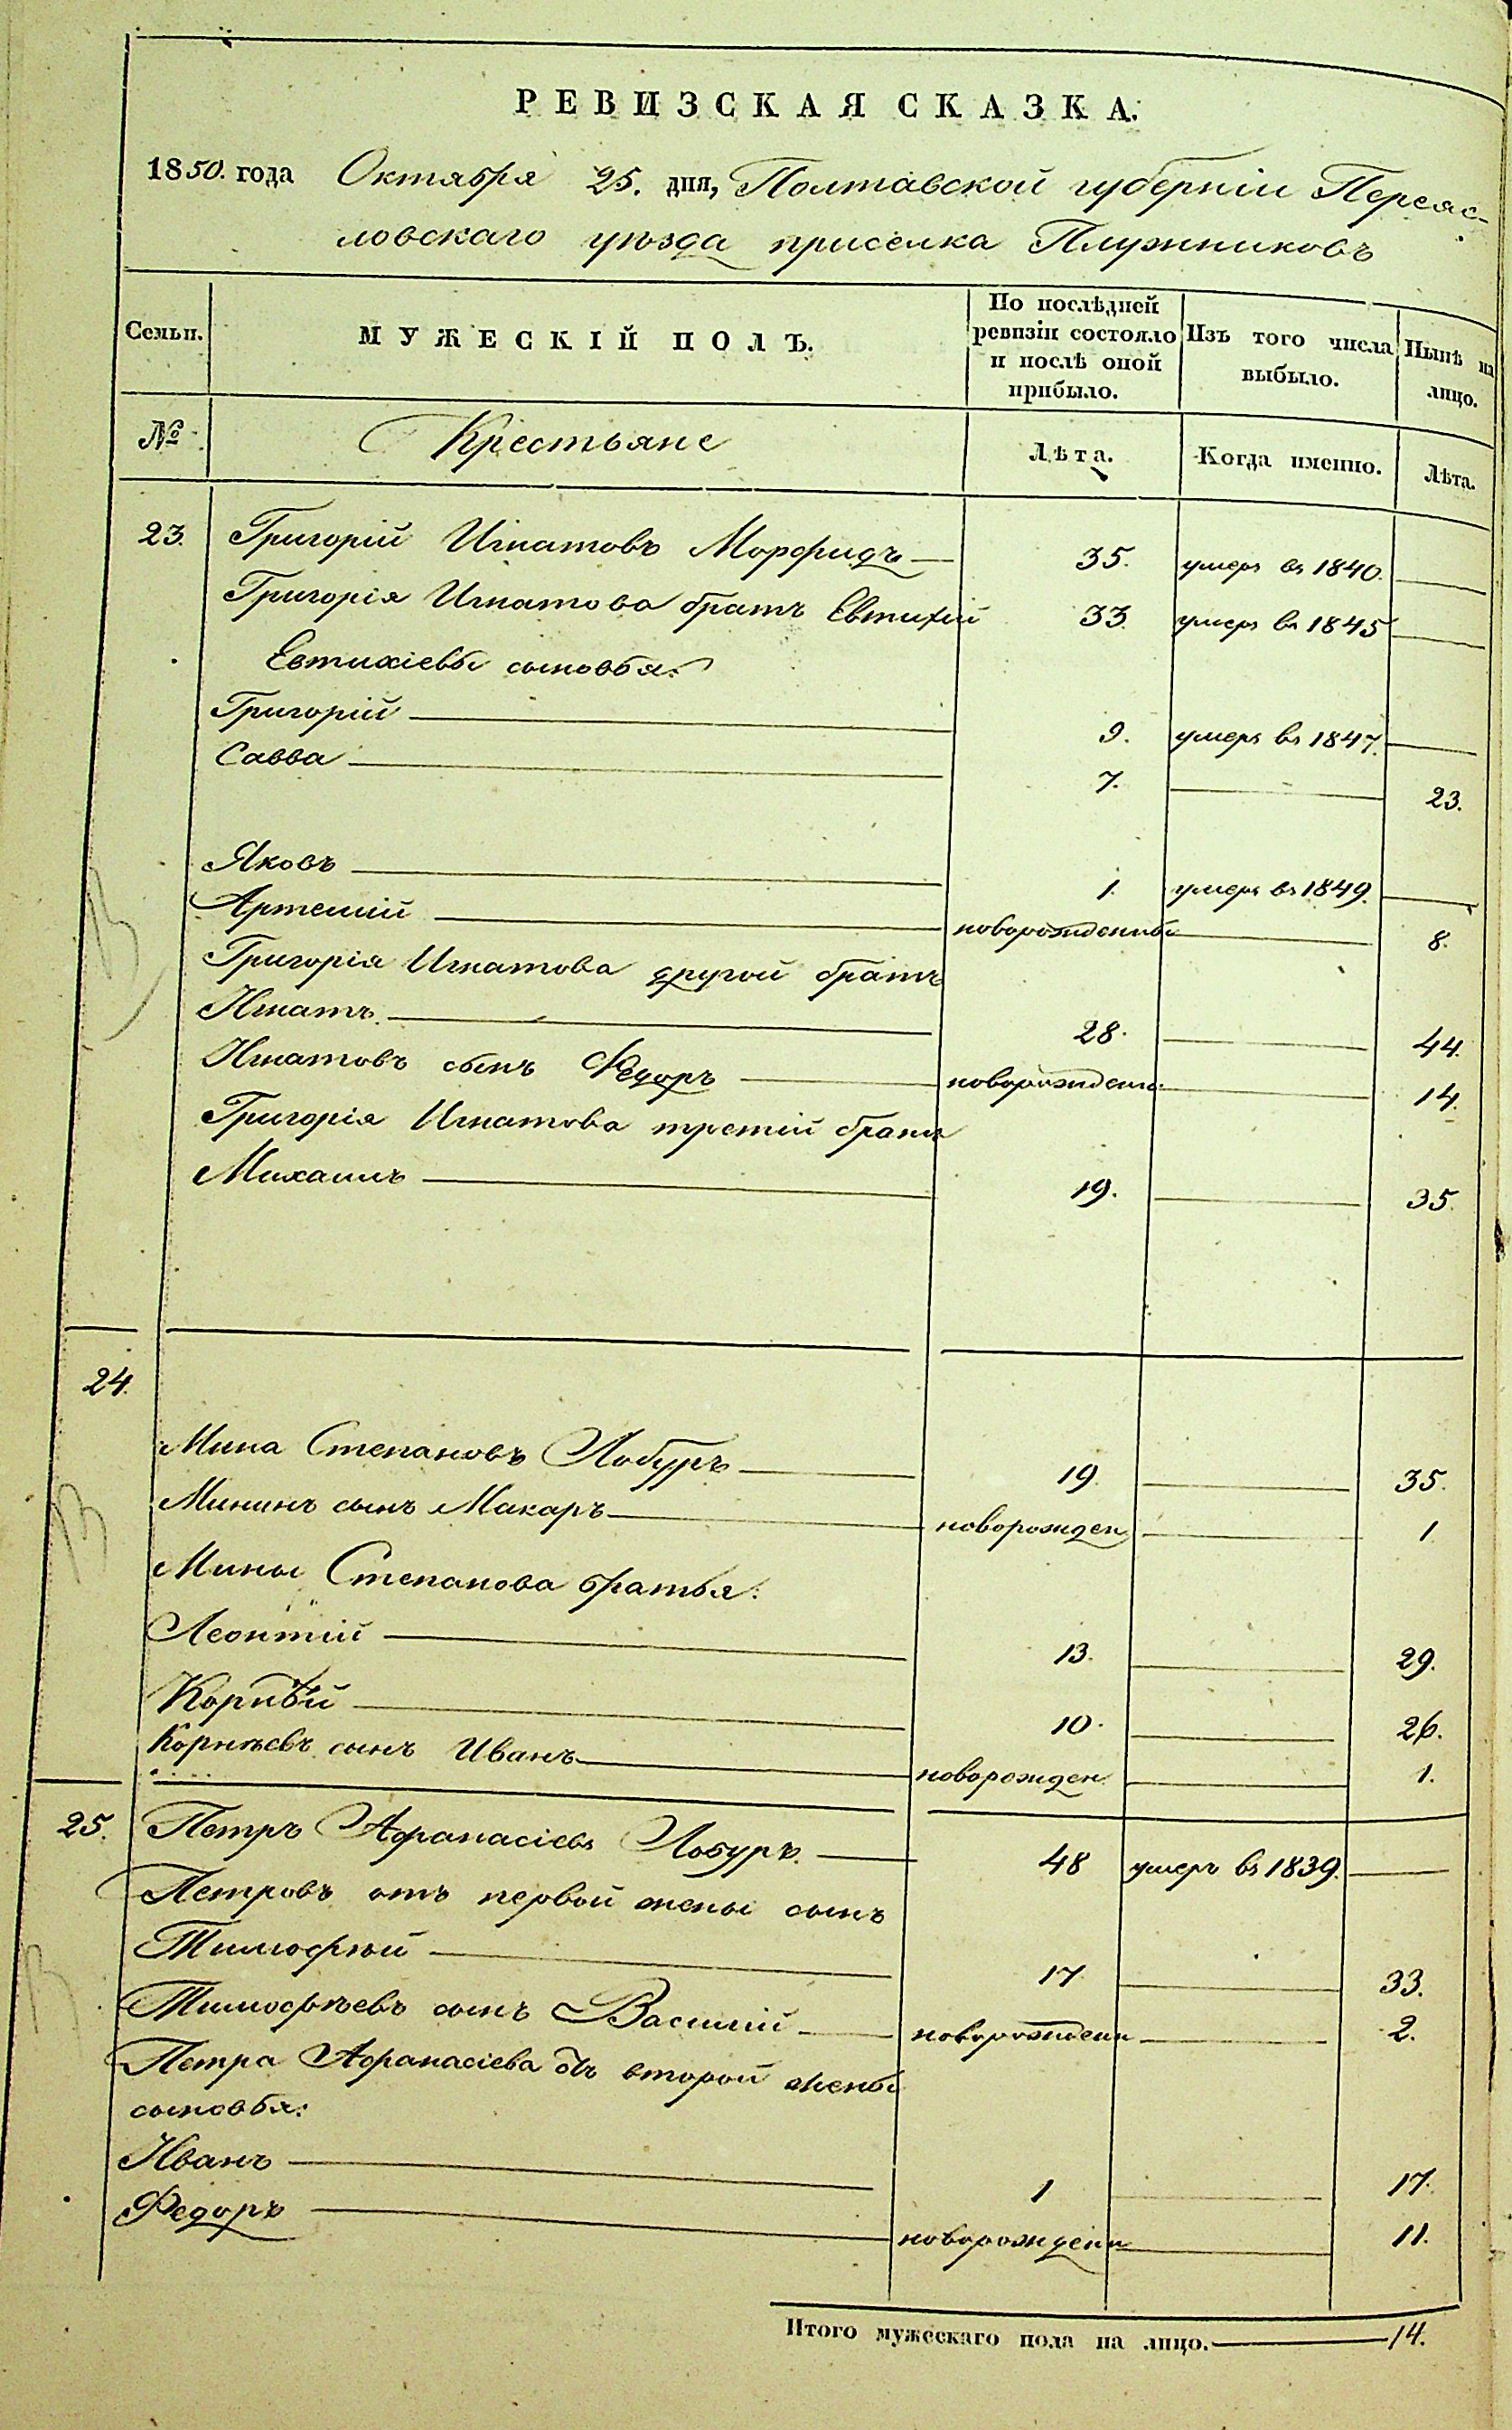 РЕВИЗСКАЯ СКАЗКА.
1850. года Октября 25. дня, Полтавской губерніи Переяс-
ловскаго уѣзда приселка Плужниковъ
Семьи. МУЖЕСКІЙ ПОЛЪ. По послѣдней ревизіи состояло и послѣ оной прибыло. Изъ того числа выбыло. Нынѣ на лицо.
№ Крестьяне Лѣта. Когда именно. Лѣта.
23. Григорій Игнатовъ 35. умеръ въ 1840.
Григорія Игнатова братъ Евтихій 33. умеръ въ 1845
Евтихіевы сыновья:
Григорій 9. умеръ въ 1847.
Савва 7. 23.
Яковъ 1. умеръ въ 1849.
Артемій новорожденный 8.
Григорія Игнатова другой братъ
Игнатъ 28. 44.
Игнатовъ сынъ Федоръ новорожден. 14.
Григорія Игнатова третій братъ
Михаилъ 19. 35.
24.
Мина Степановъ Лобуръ 19. 35.
Мининъ сынъ Макаръ новорожден 1
Мины Степанова братья:
Леонтій 13. 29.
Корнѣй 10. 26.
Корнѣевъ сынъ Иванъ новорожден 1.
25. Петръ Афанасіевъ Лобуръ. 48 умеръ въ 1839.
Петровъ отъ первой жены сынъ
Тимофѣй 17 33.
Тимофѣевъ сынъ Василій новорожден 2.
Петра Афанасіева отъ второй жены
сыновья:
Иванъ 1 17.
Федоръ новорожден 11.
Итого мужескаго пола на лицо. 14.